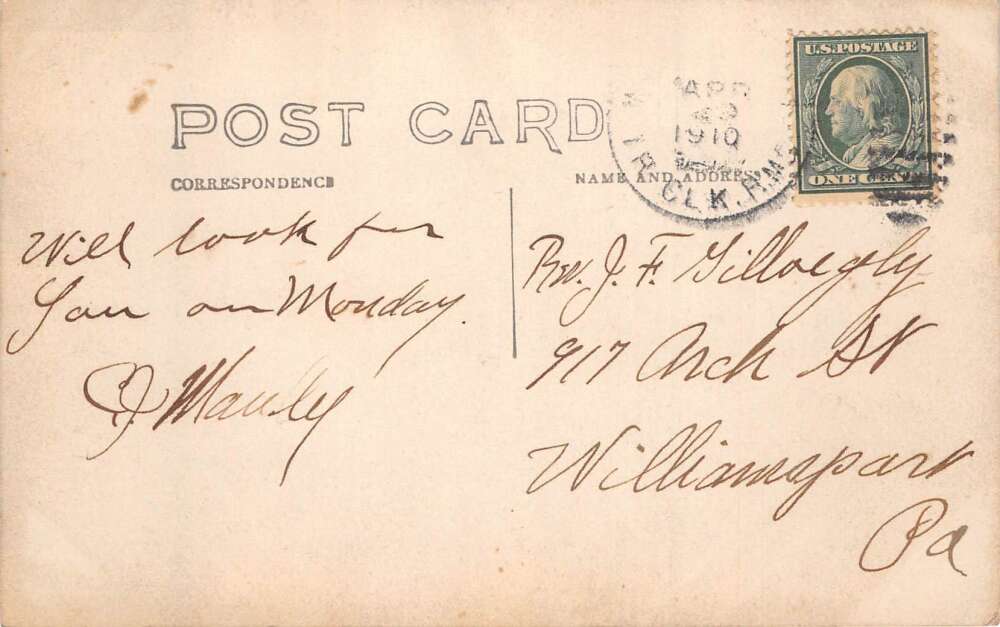 POST CARD
CORRESPONDENCE
NAME AND ADDRESS
U.S. POSTAGE
ONE CENT
APR
1910
CLK. R.M.
Will look for
You on Monday.
Rev. J. F.
917 Arch St
Williamsport
Pa